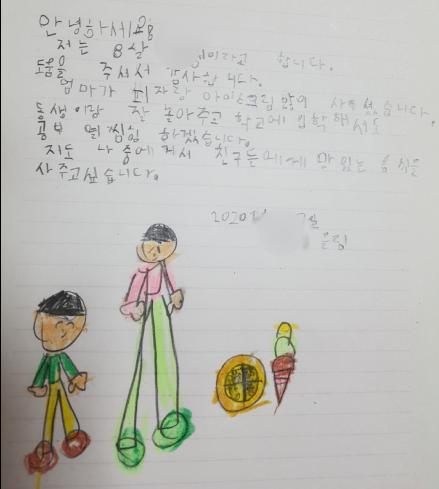 안녕하세요
저는 8살 이라고 합니다.
도움을 주셔서 감사합니다.
엄마가 피자랑 아이스크림 많이 사주셨습니다.
동생이랑 잘 놀아주고 학교에 입학해서도
공부 열씸히 하겠습니다.
저도 나중에 커서 친구들에게 맛있는 음식을
사주고싶습니다.
2020
올림